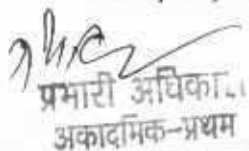 प्रभारी अधिका
अकादमिक-प्रथम